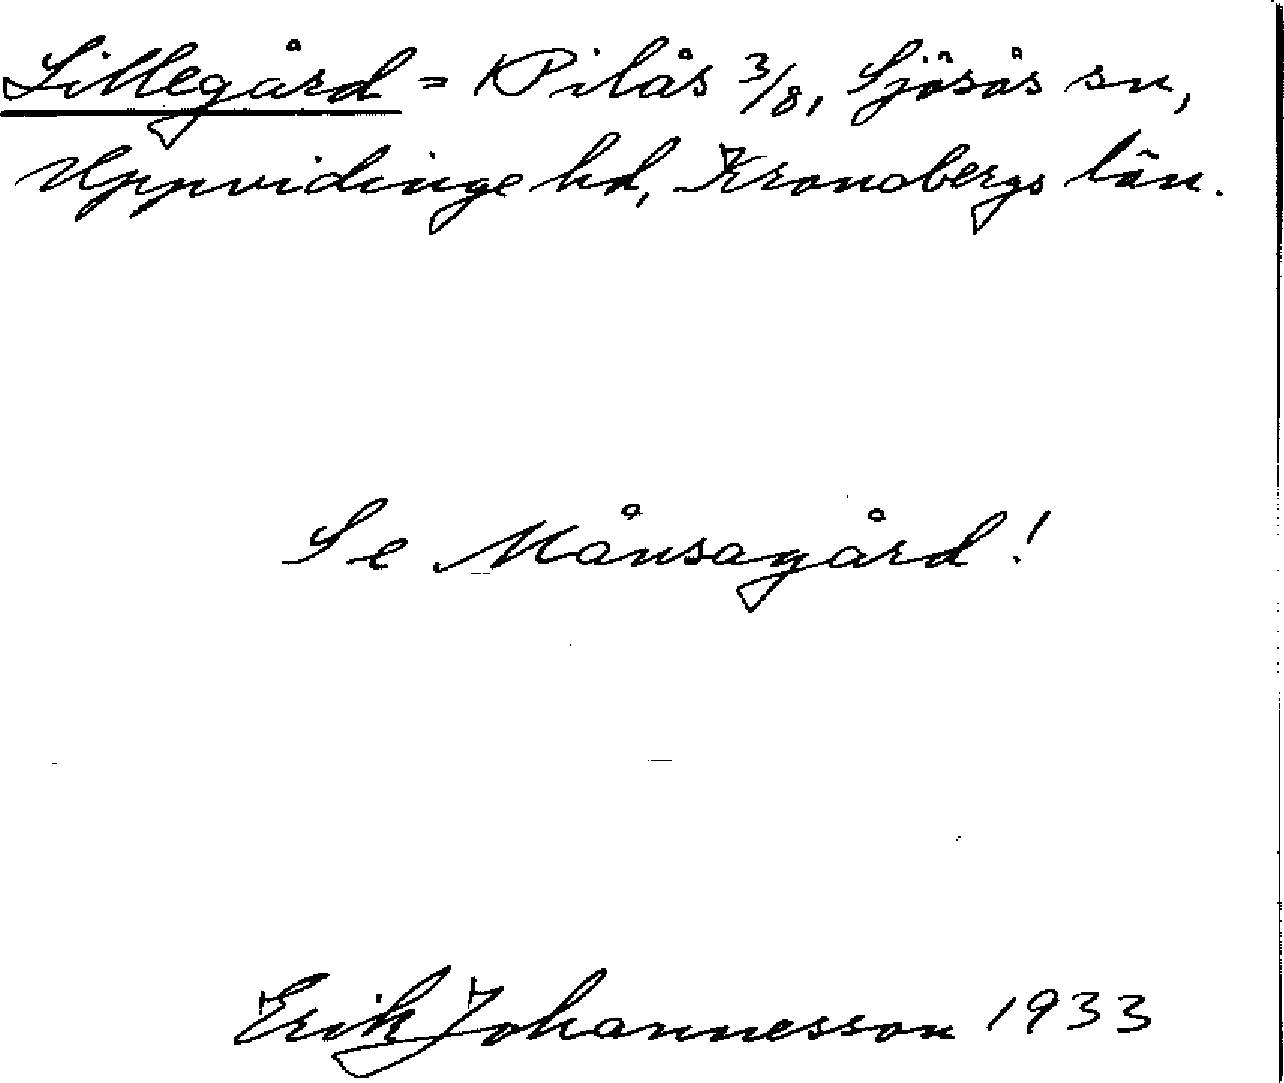 Lillegård = Pilås 3/8, Sjösås sn,
Uppvidinge hd, Kronobergs län.
Se Månsagård!
Erik Johannesson 1933